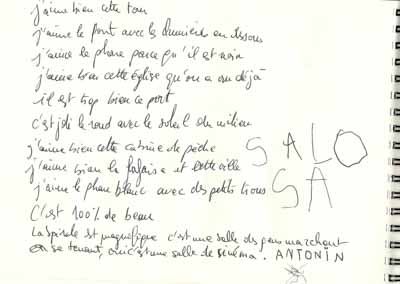 j'aime bien cette tour
j'aime le pont avec les lumières en dessous
j'aime le phare parce qu'il est noir
j'aime bien cette église qu'on a vu déjà
il est trop bien ce port
c'est joli le rond avec le soleil du milieu
j'aime bien cette cabine de pêche
j'aime bien la falaise et cette ville
j'aime le phare blanc avec des petits trous
SALO
SA
C'est 100% de beau
La spirale est magnifique c'est une salle des gens marchent
en se tenant, oui c'est une salle de cinéma. ANTONIN